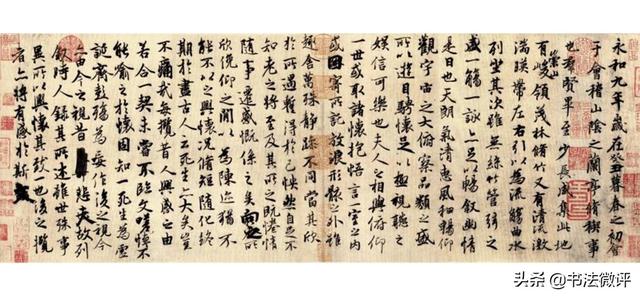 永和九年歲在癸丑暮春之初會
于會稽山陰之蘭亭脩稧事
也群賢畢至少長咸集此地
有崇山峻領茂林脩竹又有清流激
湍暎帶左右引以為流觴曲水
列坐其次雖無絲竹管弦之
盛一觴一詠亦足以暢叙幽情
是日也天朗氣清惠風和暢仰
觀宇宙之大俯察品類之盛
所以遊目騁懷足以極視聽之
娛信可樂也夫人之相與俯仰
一世或取諸懷抱悟言一室之內
或因寄所託放浪形骸之外雖
趣舍萬殊靜躁不同當其欣
於所遇蹔得於己怏然自足不
知老之將至及其所之既惓情
隨事遷感慨係之矣向之所
欣俛仰之閒以為陳迹猶不
能不以之興懷況脩短隨化終
期於盡古人云死生亦大矣豈
不痛哉每攬昔人興感之由
若合一契未嘗不臨文嗟悼不
能喻之於懷固知一死生為虛
誕齊彭殤為妄作後之視今
亦由今之視昔悲夫故列
叙時人錄其所述雖世殊事
異所以興懷其致一也後之攬
者亦將有感於斯文
头条 @书法微评